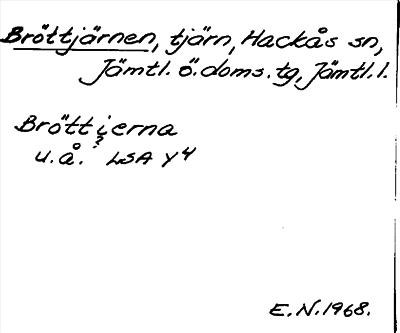 Bröttjärnen, tjärn, Hackås sn,
Jämtl. ö. doms. tg, Jämtl. l.
Bröttjerna
?
u.å. LSA Y4
E.N. 1968.